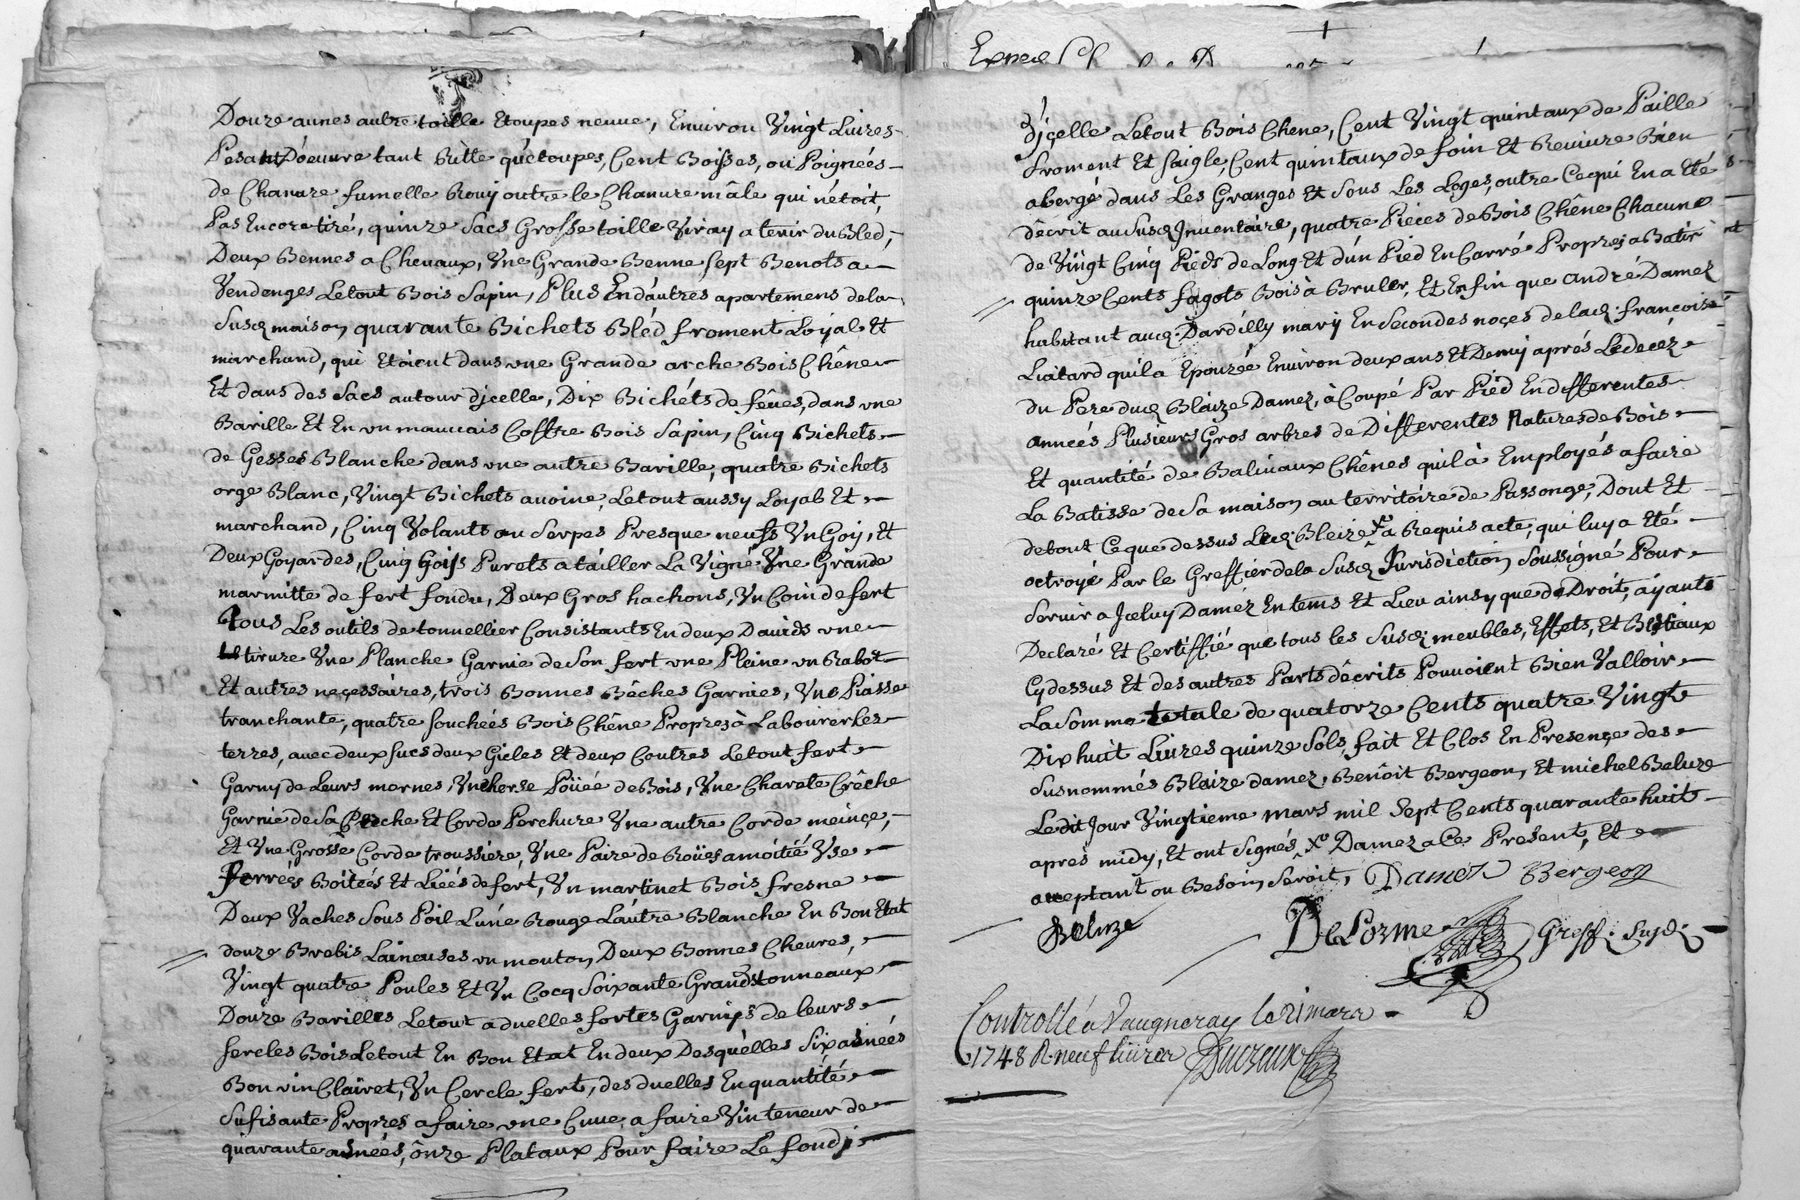 Douze aunes autre toille Etoupes neuve, Environ Vingt Livres
Pesant D'oeuvre tant Ritte qu'etoupes, Cent Boisses, ou Poignées
de Chanvre fumelle Rouy outre le Chanvre mâle qui n'étoit
Pas Encore tiré, quinze Sacs Grosse toille Viray a tenir du Bled,
Deux Bennes a Chevaux, Une Grande Benne sept Benots a
Vendenges Letout Bois Sapin, Plus En d'autres apartemens dela
Susd. maison, quarante Bichets Bléd froment Loyal Et
marchand, qui Etoient dans vne Grande arche Bois Chêne
Et dans des Sacs autour d'jcelle, Dix Bichéts de féves, dans vne
Barille Et En vn mauvais Coffre Bois Sapin, Cinq Bichets
de Gesses Blanche dans vne autre Barille, quatre Bichets
orge Blanc, Vingt Bichets avoine, Letout aussy Loyab Et
marchand, Cinq Volants ou Serpes Presque neufs Vn Goy, Et
Deux Goyardes, Cinq Goijs Purets a tâiller La Vigne Vne Grande
marmitte de fert fondu, Deux Gros hachons, Vn Coin de fert
Tous Les outils de tonnellier Consistants En deux Davids vne
tirure Vne Planche Garnie de Son fert vne Pleine vn Rabot
Et autres neçessaires, trois Bonnes Bêches Garnies, Vne Piasse
tranchante, quatre souchées Bois Chêne Propres à Labourer Les
terres, avec deux fues deux Gicles Et deux Coutres Letout fert
Garny de Leurs mornes, Vne herse Poüée de Bois, Vne Charete Crêche
Garnie de Sa Perche Et Corde Perchure Vne autre Corde meinçe,
Et Vne Grosse Corde troussiere, Vne Paire de Roües a moitié Vse
ferrées Boitées Et Liées de fert, Vn martinet Bois fresne
Deux Vaches Sous Poil L'une Rouge L'autre Blanche En Bon Etat
douze Brebis Laineuses vn mouton, Deux Bonnes Chevres,
Vingt quatre Poules Et Vn Cocq Soixante Grands tonneaux
Douze Barilles Letout a duelles fortes Garnijs de leurs
sercles Bois Letout En Bon Etat En deux Desquelles Six asnées
Bon vin Clairet, Vn Cercle fert, des duelles En quantité
Sufisante Propres a faire vne Cuve, a faire Vin teneur de
quarante asnées, ônze Plataux Pour faire Le fond j
Expéd.
d'jçelle Letout Bois Chene, Cent Vingt quintaux de Paille
froment Et Saigle, Cent quintaux de foin Et Reviure Bien
abergé dans Les Granges Et Sous Les Loges, outre Cequi En a Eté
dêcrit au Susd. Inventaire, quatre Pieces de Bois Chêne Chacune
de Vingt Cinq Pieds de Long Et d'un Pied En Carré Propres a Batir
quinze Cents fagots Bois à Bruller, Et Enfin que andré Damez
habitant aud. Dardilly mary En Secondes noçes de lad. francoise
Liatard qu'il a Epouzée Environ deux ans Et Demy aprés Ledecéz
du Pere dud. Blaize Damez, à Coupé Par Pied En differentes
années Plusieurs Gros arbres de Differentes Natures de Bois
Et quantité de Balivaux Chênes qu'il à Employés a faire
La Batisse de Sa maison au territoire de Passonge, Dont Et
detout Ceque dessus Led. Bleize Xo a Requis acte, qui luy a Eté
octroyé Par le Greffier de la Susd. Jurisdiction Soussigné Pour
Servir a Jceluy Damez En tems Et Lieu ainsy que de Droit, ayants
Declaré Et Certiffié que tous les Susd. meubles, Effets, Et Bestiaux
Cydessus Et des autres Parts dêcrits Pouvoient Bien Valloir
La Sômme totale de quatorze Cents quatre Vingt
Dix huit Livres quinze Sols, fait Et Clos En Presençe des
Susnommés Blaize Damez, Benôit Bergeon, Et michel Beluze
Ledit Jour Vingtieme mars mil Sept Cents quarante huit
apres midy, Et ont Signés Xo Damez a Ce Present, Et
aceptant ou Besoin Seroit, Damez Bergeon
Beluze DeLorme Greff. Susd.
Controllé á Vaugneray le 21 mars
1748 R. neuf livres Ducreux